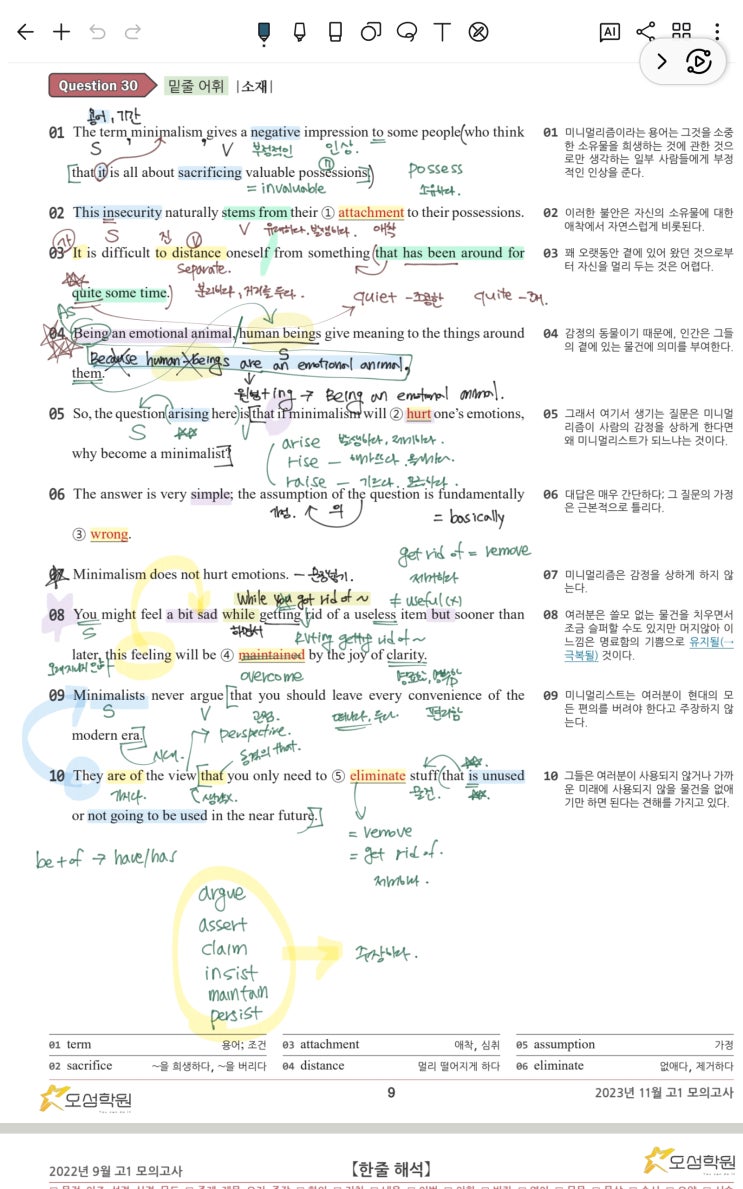 AI
Question 30 밑줄 어휘 |소재|
용어, 기간
01 The term, minimalism, gives a negative impression to some people (who think
S V 부정적인 인상.
[that it is all about sacrificing valuable possessions.])
= invaluable
possess
소유하다.
01 미니멀리즘이라는 용어는 그것을 소중
한 소유물을 희생하는 것에 관한 것으
로만 생각하는 일부 사람들에게 부정
적인 인상을 준다.
02 This insecurity naturally stems from their ① attachment to their possessions.
S V 유래하다. 발생하다. 애착
02 이러한 불안은 자신의 소유물에 대한
애착에서 자연스럽게 비롯된다.
가 진 V
03 It is difficult to distance oneself from something (that has been around for
separate.
quite some time.)
분리하다, 거리를 두다.
quiet - 조용한 quite - 꽤.
03 꽤 오랫동안 곁에 있어 왔던 것으로부
터 자신을 멀리 두는 것은 어렵다.
As
04 Being an emotional animal, / human beings give meaning to the things around
S
Because human beings are an emotional animal,
them.
원형+ing → Being an emotional animal.
04 감정의 동물이기 때문에, 인간은 그들
의 곁에 있는 물건에 의미를 부여한다.
05 So, the question (arising here) is [that if minimalism will ② hurt one's emotions,
S V
why become a minimalist?]
arise 발생하다, 제기하다.
rise –
raise –
05 그래서 여기서 생기는 질문은 미니멀
리즘이 사람의 감정을 상하게 한다면
왜 미니멀리스트가 되느냐는 것이다.
06 The answer is very simple; the assumption of the question is fundamentally
가정. 의 = basically
③ wrong.
06 대답은 매우 간단하다; 그 질문의 가정
은 근본적으로 틀리다.
get rid of = remove
제거하다
07 Minimalism does not hurt emotions.
≠ useful (x)
07 미니멀리즘은 감정을 상하게 하지 않
는다.
While you get rid of ~
08 You might feel a bit sad while getting rid of a useless item but sooner than
S 하면서
later, this feeling will be ④ maintained by the joy of clarity.
overcome
08 여러분은 쓸모 없는 물건을 치우면서
조금 슬퍼할 수도 있지만 머지않아 이
느낌은 명료함의 기쁨으로 유지될(→
극복될) 것이다.
09 Minimalists never argue [that you should leave every convenience of the
S V 떠나다, 두다. 편리함
modern era.]
시대.
perspective.
동격의 that.
09 미니멀리스트는 여러분이 현대의 모
든 편의를 버려야 한다고 주장하지 않
는다.
10 They are of the view [that you only need to ⑤ eliminate stuff (that is unused
가지다. 물건.
or not going to be used in the near future.]
= remove
= get rid of.
제거하다.
10 그들은 여러분이 사용되지 않거나 가까
운 미래에 사용되지 않을 물건을 없애
기만 하면 된다는 견해를 가지고 있다.
be + of → have/has
argue
assert
claim
insist
maintain
persist
주장하다.
01 term 용어; 조건 03 attachment 애착, 심취 05 assumption 가정
02 sacrifice ~을 희생하다, ~을 버리다 04 distance 멀리 떨어지게 하다 06 eliminate 없애다, 제거하다
오성학원 9 2023년 11월 고1 모의고사
2022년 9월 고1 모의고사 【한줄 해석】 오성학원